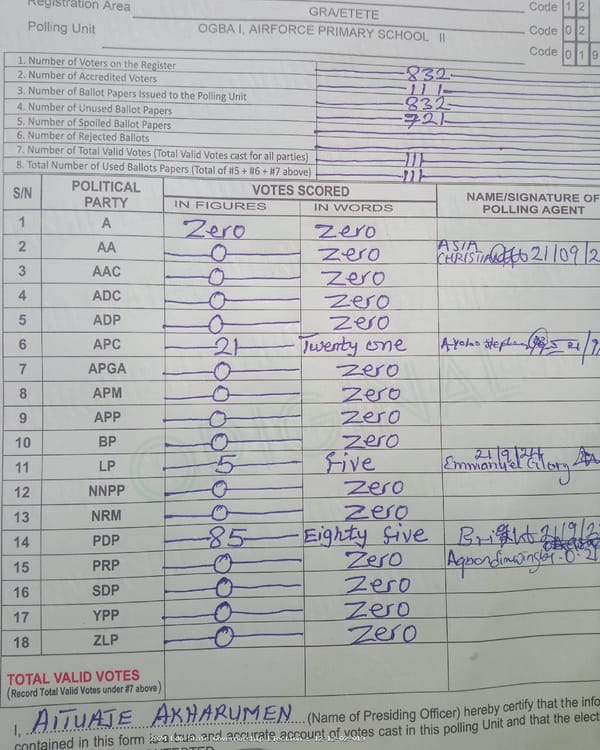 Registration Area GRA/ETETE Code 1 2
Polling Unit OGBA I, AIRFORCE PRIMARY SCHOOL II Code 0 2
Code 0 1 9
1. Number of Voters on the Register 832
2. Number of Accredited Voters 111
3. Number of Ballot Papers Issued to the Polling Unit 832
4. Number of Unused Ballot Papers 721
5. Number of Spoiled Ballot Papers
6. Number of Rejected Ballots
7. Number of Total Valid Votes (Total Valid Votes cast for all parties) 111
8. Total Number of Used Ballots Papers (Total of #5 + #6 + #7 above) 111
S/N POLITICAL PARTY VOTES SCORED NAME/SIGNATURE OF POLLING AGENT
IN FIGURES IN WORDS
1 A Zero Zero
2 AA 0 Zero ASIA CHRISTIA 21/09/2
3 AAC 0 Zero
4 ADC 0 Zero
5 ADP 0 Zero
6 APC 21 Twenty one
7 APGA 0 Zero
8 APM 0 Zero
9 APP 0 Zero
10 BP 0 Zero
11 LP 5 five Emmanuel Glory 21/9/24
12 NNPP 0 Zero
13 NRM 0 Zero
14 PDP 85 Eighty five Bright 21/9/2
15 PRP 0 Zero
16 SDP 0 Zero
17 YPP 0 Zero
18 ZLP 0 Zero
TOTAL VALID VOTES
(Record Total Valid Votes under #7 above)
I, AITUAJE AKHARUMEN (Name of Presiding Officer) hereby certify that the info
contained in this form is a true and accurate account of votes cast in this polling Unit and that the elect
ORIGINAL